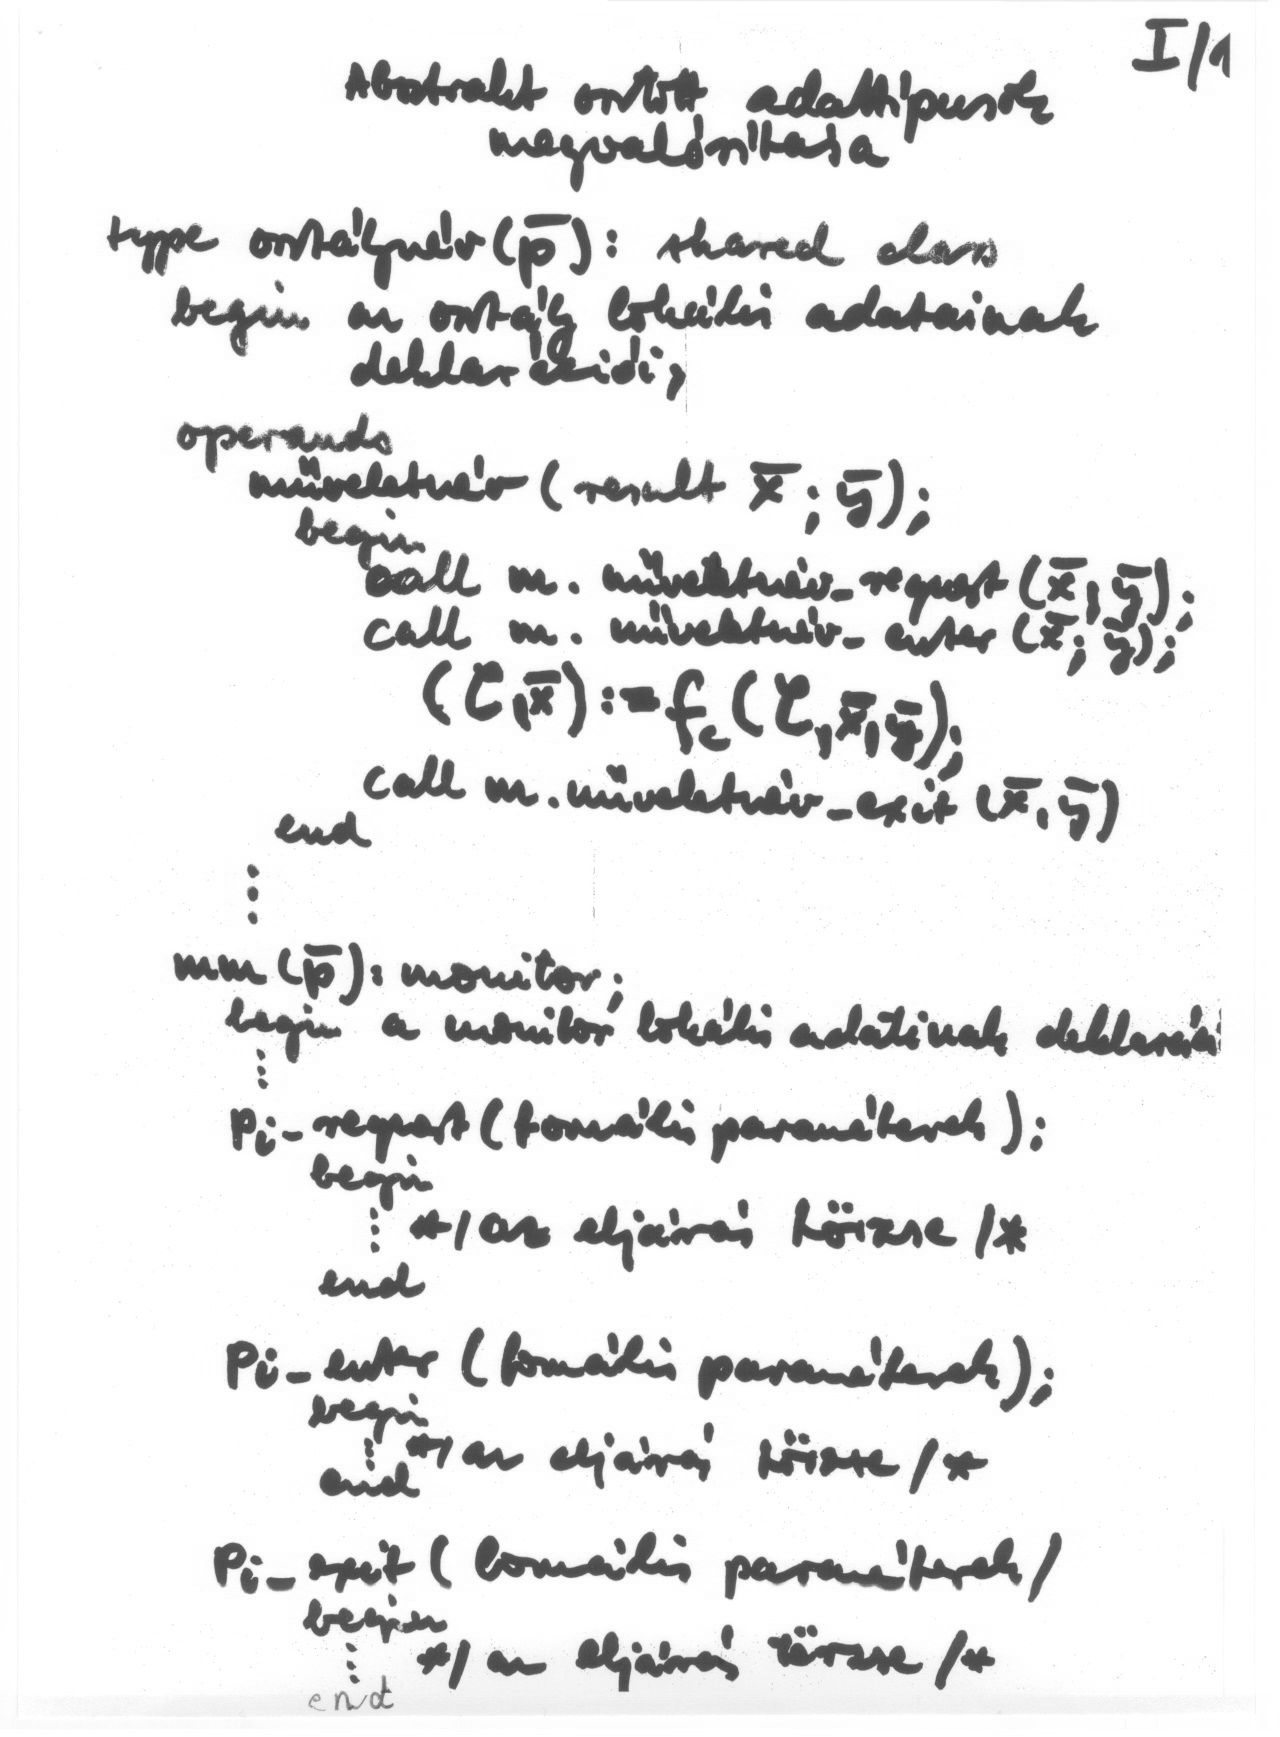 I/1
Abstrakt osztott adattípusok
megvalósítása
type osztálynév (p̅): shared class
begin az osztály lokális adatainak
deklarációi;
operands
műveletnév (result x̅; y̅);
begin
call m. műveletnév_request (x̅, y̅);
call m. műveletnév_enter (x̅; y̅);
(τ, x̅) := f_c (τ, x̅, y̅);
call m. műveletnév_exit (x̅, y̅)
end
⋮
mm (p̅): monitor;
begin a monitor lokális adatinak deklarációi
⋮
Pi_request (formális paraméterek);
begin
⋮ */ az eljárás törzse /*
end
Pi_enter (formális paraméterek);
begin
⋮ */ az eljárás törzse /*
end
Pi_exit (formális paraméterek/
begin
⋮ */ az eljárás törzse /*
end